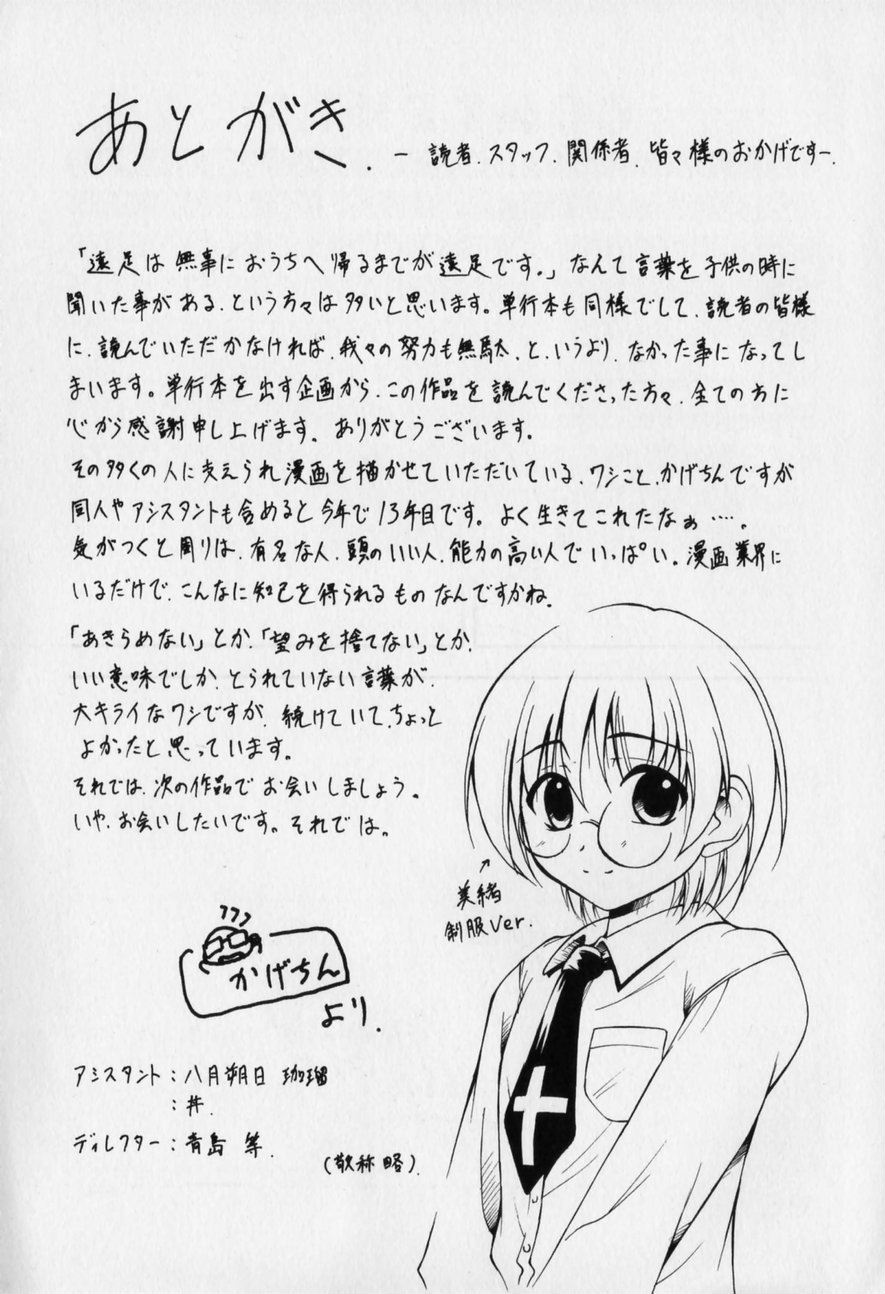 あとがき. ー 読者、スタッフ、関係者、皆々様のおかげですー.
「遠足は無事におうちへ帰るまでが遠足です。」なんて言葉を子供の時に
聞いた事がある、という方々は多いと思います。単行本も同様でして、読者の皆様
に、読んでいただかなければ、我々の努力も無駄、と、いうより、なかった事になってし
まいます。単行本を出す企画から、この作品を読んでくださった方々、全ての方に
心から感謝申し上げます。ありがとうございます。
その多くの人に支えられ漫画を描かせていただいている、ワシこと、かげちんですが
同人やアシスタントも含めると今年で13年目です。よく生きてこれたなぁ…。
気がつくと周りは、有名な人、頭のいい人、能力の高い人でいっぱい。漫画業界に
いるだけで、こんなに知己を得られるものなんですかね。
「あきらめない」とか、「望みを捨てない」とか、
いい意味でしか、とられていない言葉が、
大キライなワシですが、続けていて、ちょっと
よかったと思っています。
それでは、次の作品でお会いしましょう。
いや、お会いしたいです。それでは。
美緒
制服Ver.
かげちん
より.
アシスタント：八月朔日 珈瑠
：丼.
ディレクター：青島 等.
（敬称略）.